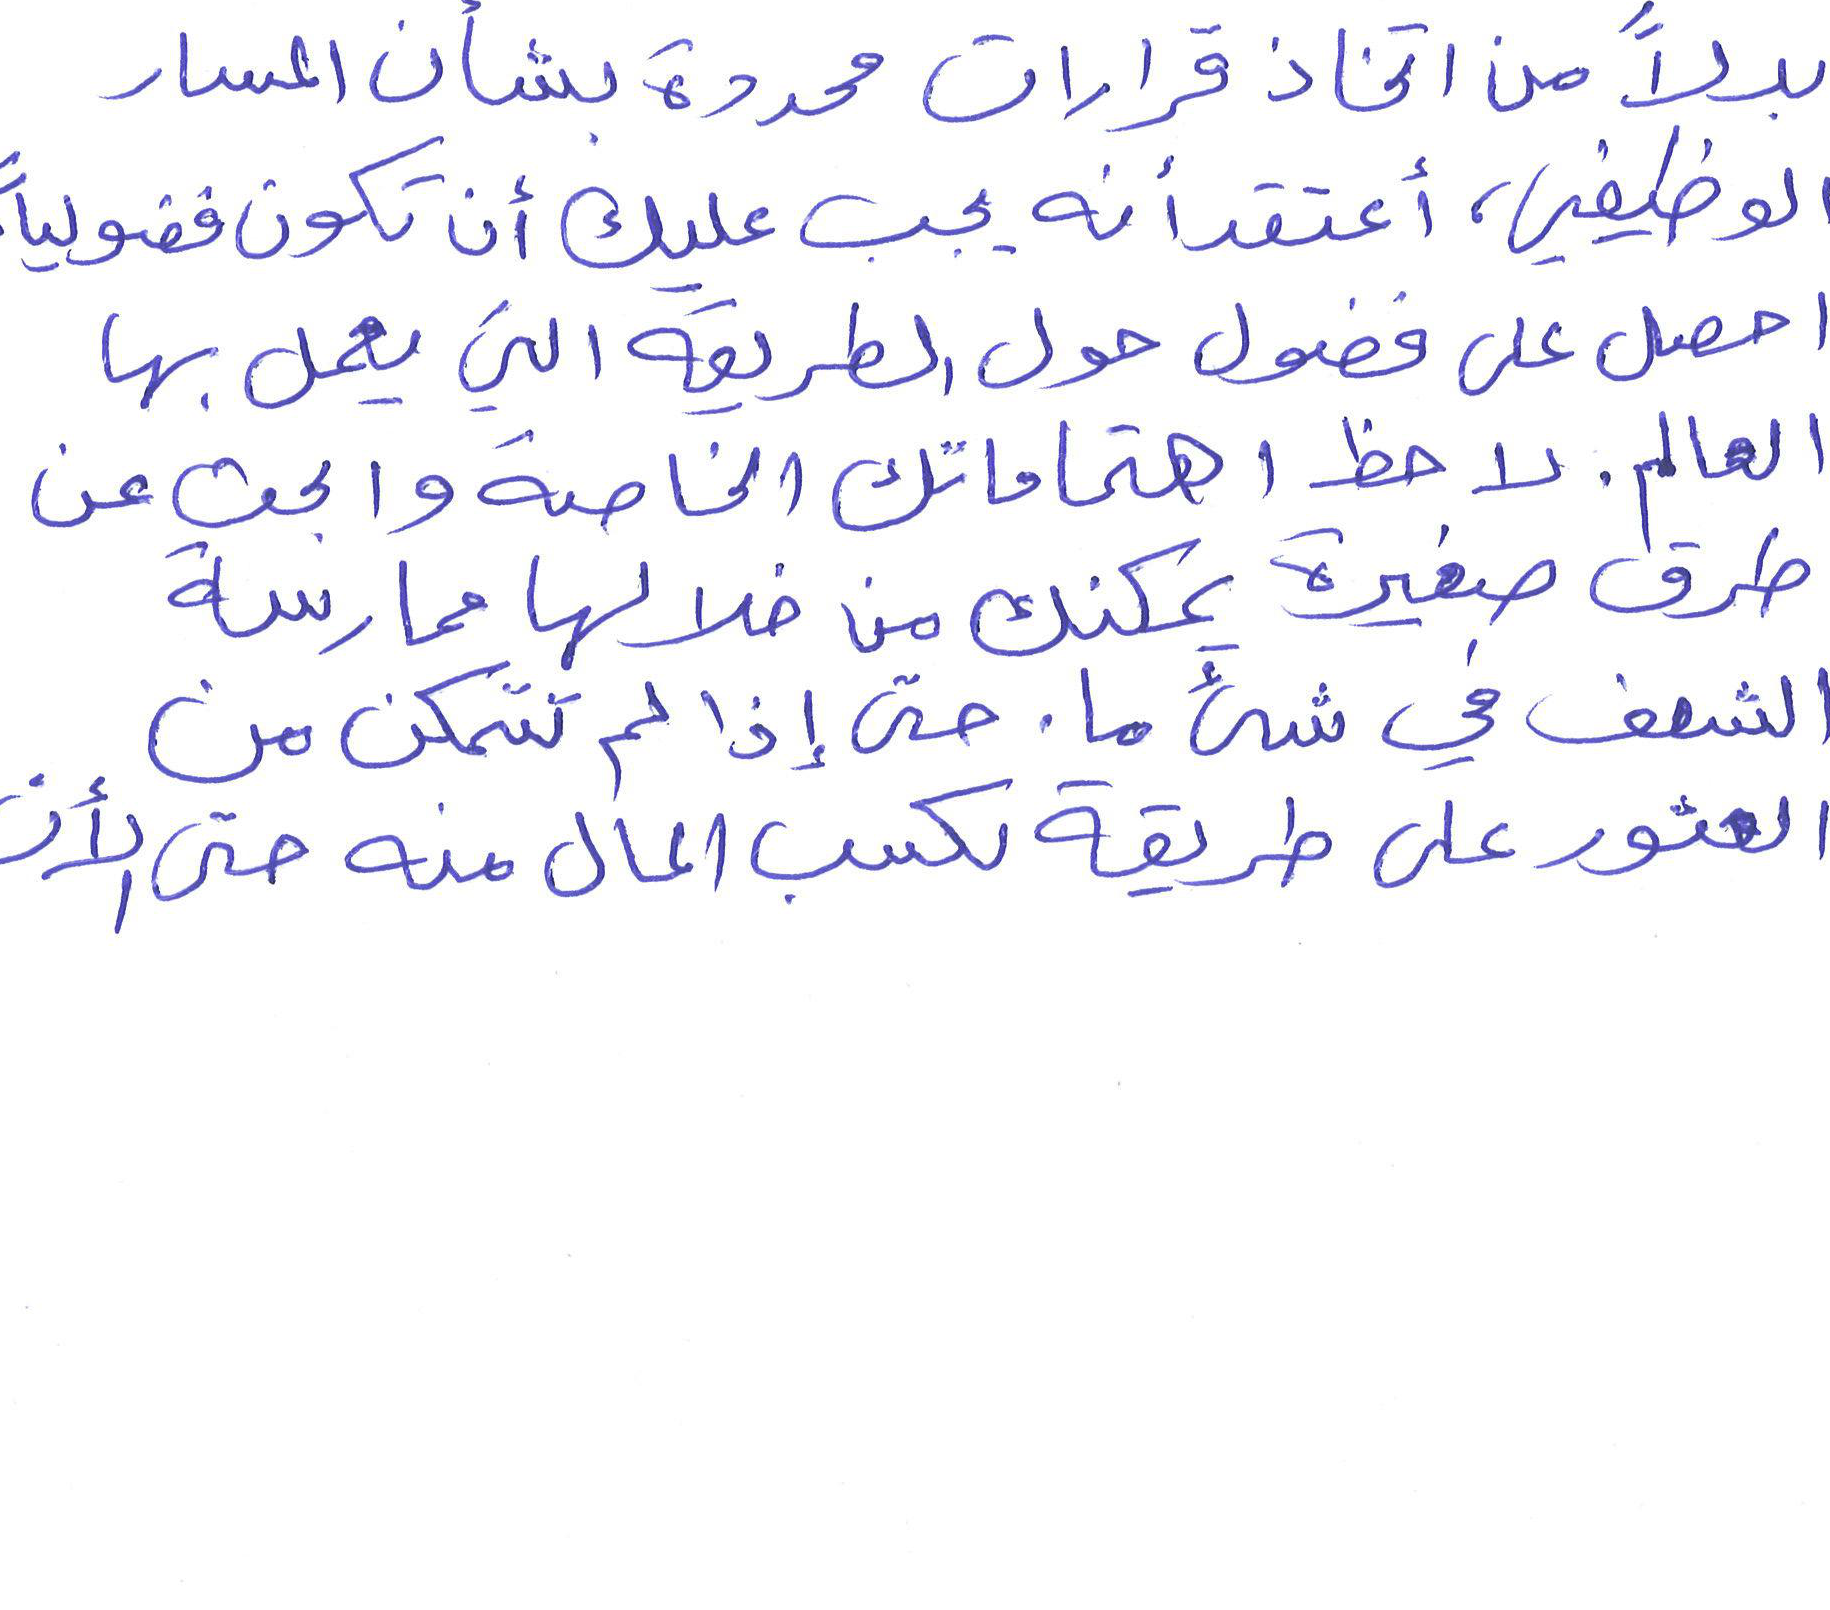 بدلاً من اتخاذ قرارات محددة بشأن المسار
الوظيفي، أعتقد أنه يجب عليك أن تكون فضولياً.
احصل على فضول حول الطريقة التي يعمل بها
العالم. لاحظ اهتماماتك الخاصة وابحث عن
طرق صغيرة يمكنك من خلالها ممارسة
الشغف في شئ ما. حتى إذا لم تتمكن من
العثور على طريقة لكسب المال منه حتى الأن